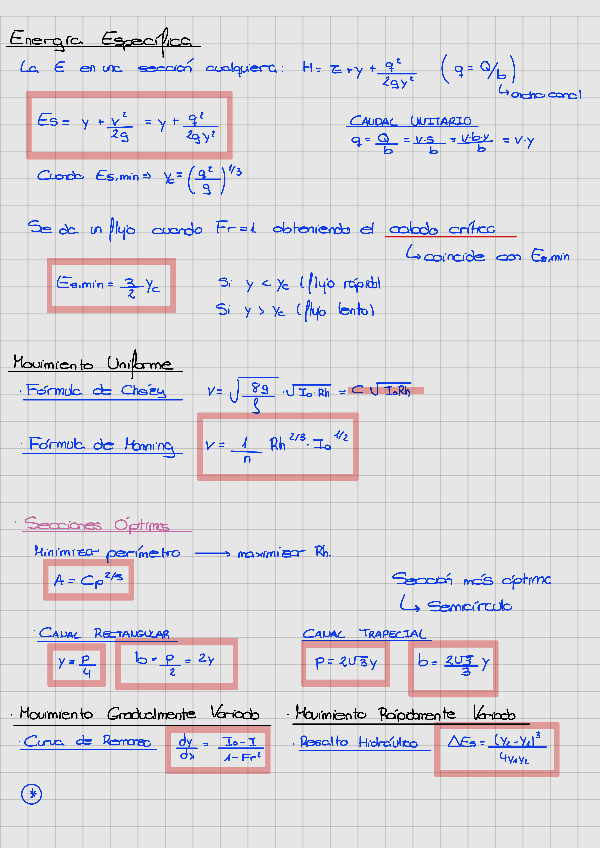 Energía Específica
La E en una sección cualquiera: H = z + y + q²/2gy² (q = Q/b)
↳ ancho canal
Es = y + v²/2g = y + q²/2gy²
CAUDAL UNITARIO
q = Q/b = v·s/b = v·b·y/b = v·y
Cuando Es,min ⇒ yc = (q²/g)^1/3
Se da un flujo cuando Fr=1 obteniendo el calado crítico
↳ coincide con Es,min
Es,min = 3/2 yc
Si y < yc (flujo rápido)
Si y > yc (flujo lento)
Movimiento Uniforme
· Fórmula de Chezy v = √(8g/f) · √(Io·Rh) = C √(IoRh)
· Fórmula de Manning v = 1/n Rh^2/3 · Io^1/2
· Secciones Óptimas
Minimizar perímetro → maximizar Rh.
A = Cp^2/5
Sección más óptima
↳ Semicírculo
· CANAL RECTANGULAR
y = P/4 b = P/2 = 2y
CANAL TRAPECIAL
P = 2√3 y b = 2√3/3 y
· Movimiento Gradualmente Variado
· Curva de Remanso dy/dx = Io - I/1 - Fr²
· Movimiento Rápidamente Variado
· Resalto Hidráulico ΔEs = (y2 - y1)³/4y1y2
*